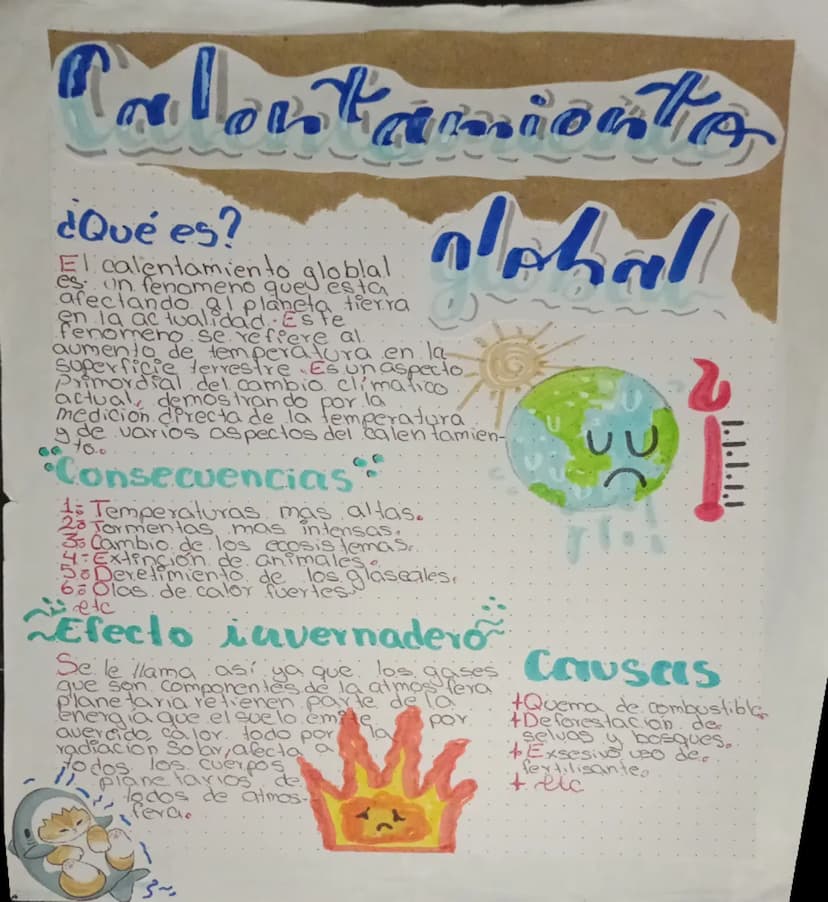 Calentamiento
global
¿Qué es?
El calentamiento globlal
es un fenomeno que esta
afectando al planeta tierra
en la actualidad. Este
fenomeno se refiere al
aumento de temperatura en la
superficie terrestre. Es un aspecto
primordial del cambio climatico
actual, demostrando por la
medicion directa de la temperatura
y de varios aspectos del calentamien-
to.
Consecuencias
1: Temperaturas mas altas.
2: Tormentas mas intensas.
3: Cambio de los ecosistemas.
4: Extinción de animales.
5: Deretimiento de los glaseales.
6: Olas de calor fuertes
etc
Efecto invernadero
Se le llama así ya que los gases
que son componentes de la atmosfera
planetaria retienen parte de la
energia que el suelo emite por
avercido calor todo por la
radiacion solar, afecta a
todos los cuerpos
planetarios de
todos de atmos-
fera.
Causas
+ Quema de combustible
+ Deforestacion de
selvas y bosques.
+ Exsesivo uso de.
fertilisante.
+ etc